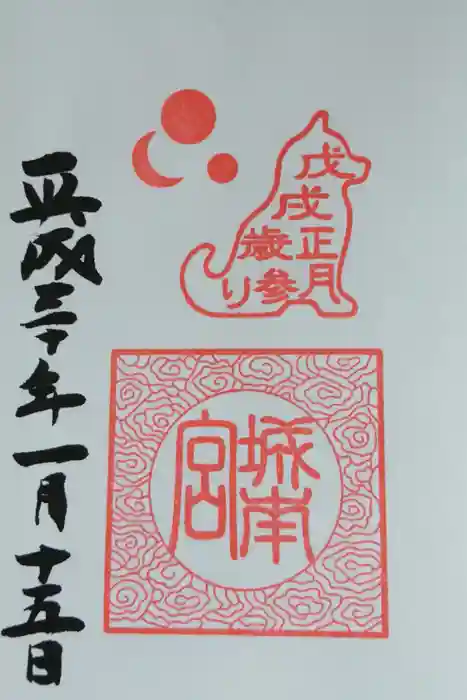 戊戌正月
歳参り
城南
宮
平成三十年一月十五日